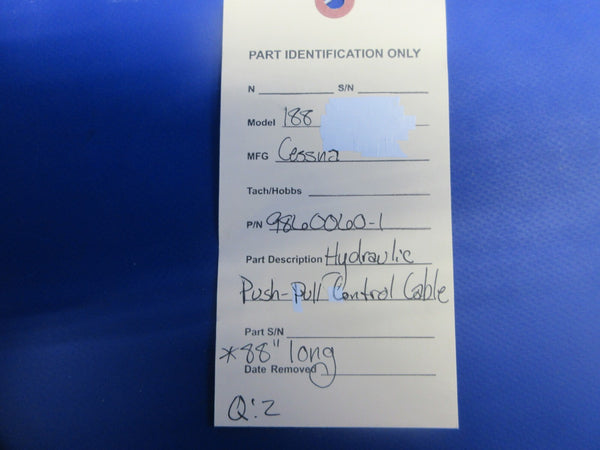 PART IDENTIFICATION ONLY
N S/N
Model 188
MFG Cessna
Tach/Hobbs
P/N 9860060-1
Part Description Hydraulic
Push-Pull Control Cable
Part S/N
*88" long
Date Removed
Q:2